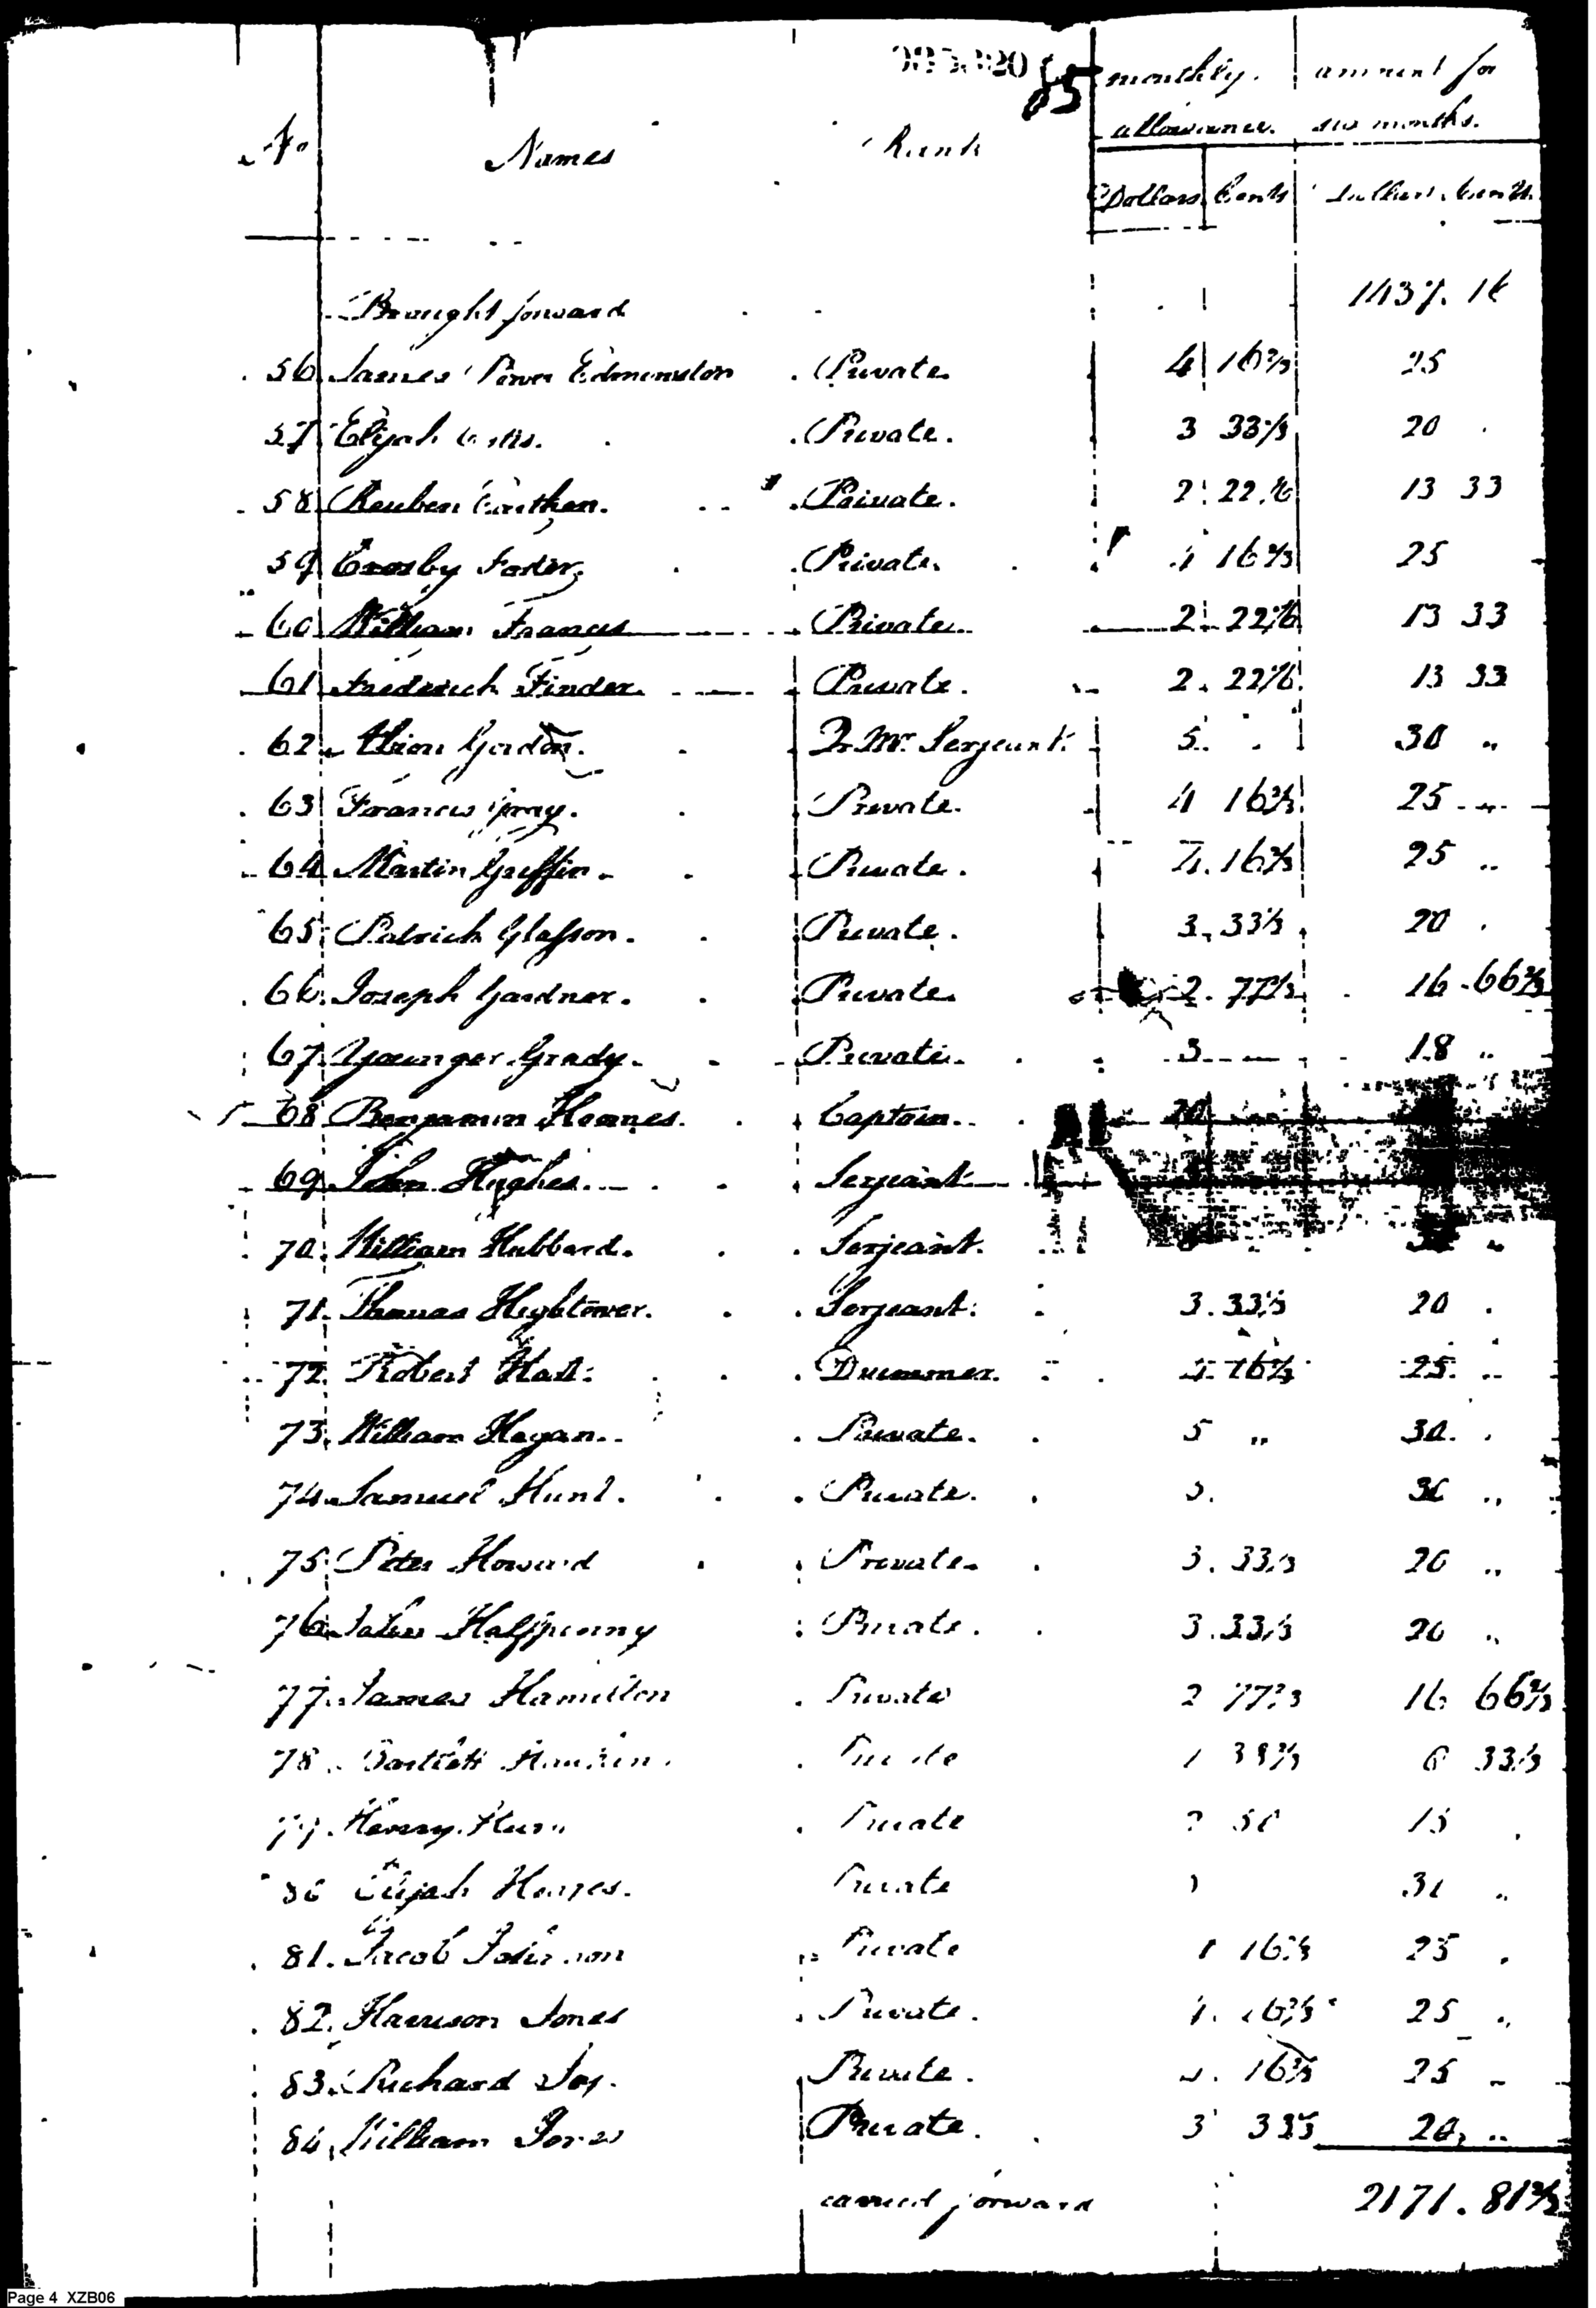 85
monthly. amount for
allowance. six months.
No Names Rank
Dollars Cents Dollars Cents
Brought forward 1437. 16
56 James Power Edmonston Private 4 16 2/3 25
57 Elijah Private. 3 33 1/3 20
58 Reuben Earthen. Private. 2 22 13 33
59 Crosby Foster Private. 4 16 2/3 25
60 William Frances Private 2 22 13 33
61 Frederick Finder. Private. 2. 22 13 33
62 Gordon. Qr. Mr. Serjeant. 5 30 "
63 Francis Gray. Private. 4 16 2/3 25
64 Martin Griffin. Private. 4. 16 2/3 25 "
65 Patrick Glasson. Private. 3. 33 1/3 20
66. Joseph Gardner. Private 2. 77 16. 66 2/3
67. Younger Grady. Private. 3 18 "
68 Benjamin Captain. 20
69 John Hughes. Serjeant
70. William Hubbard. Serjeant. "
71. Thomas Hightower. Serjeant. 3. 33 1/3 20
72. Robert Hart. Drummer. 4. 16 2/3 25. "
73. William Hagan. Private. 5 " 30.
74. Samuel Hunt. Private. 5. 30 "
75. Peter Howard Private 3. 33 1/3 20 "
76. Halfpenny Private. 3. 33 1/3 20 "
77. James Hamilton Private 2 77 2/3 16 66 2/3
78. Bartlett Private 1 38 33 1/3
79. Henry Private 2 50 15
80 Elijah Private 30 "
81. Jacob Johnson Private 4 16 2/3 25
82. Harrison Jones Private. 4. 16 2/3 25 "
83. Richard Joy. Private. 4. 16 2/3 25 "
84. William Jones Private. 3 33 1/3 20. "
carried forward 2171. 81 2/3
Page 4 XZB06